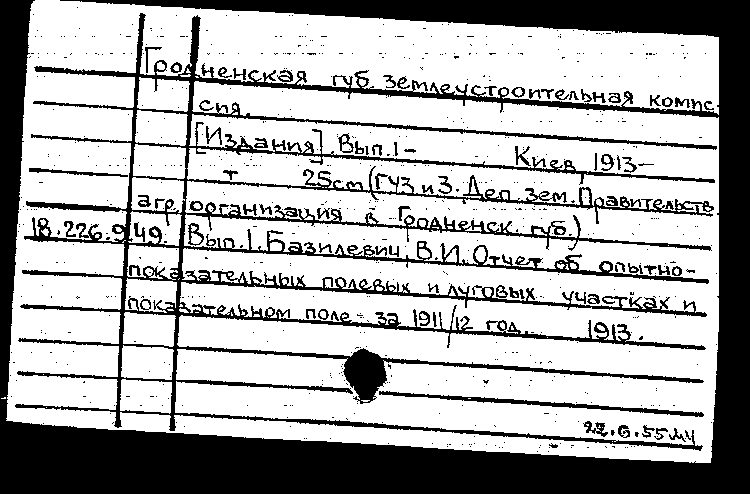 Гродненская губ. землеустроительная комис
сия.
[Издания]. Вып. 1- Киев, 1913-
т 25cm (ГУЗ и З. Деп. зем. Правительств.
агр. организация в Гродненск. губ.)
18.226.9.49. Вып. 1. Базилевич, В.И. Отчет об опытно-
показательных полевых и луговых участках и
показательном поле за 1911/12 год. 1913.